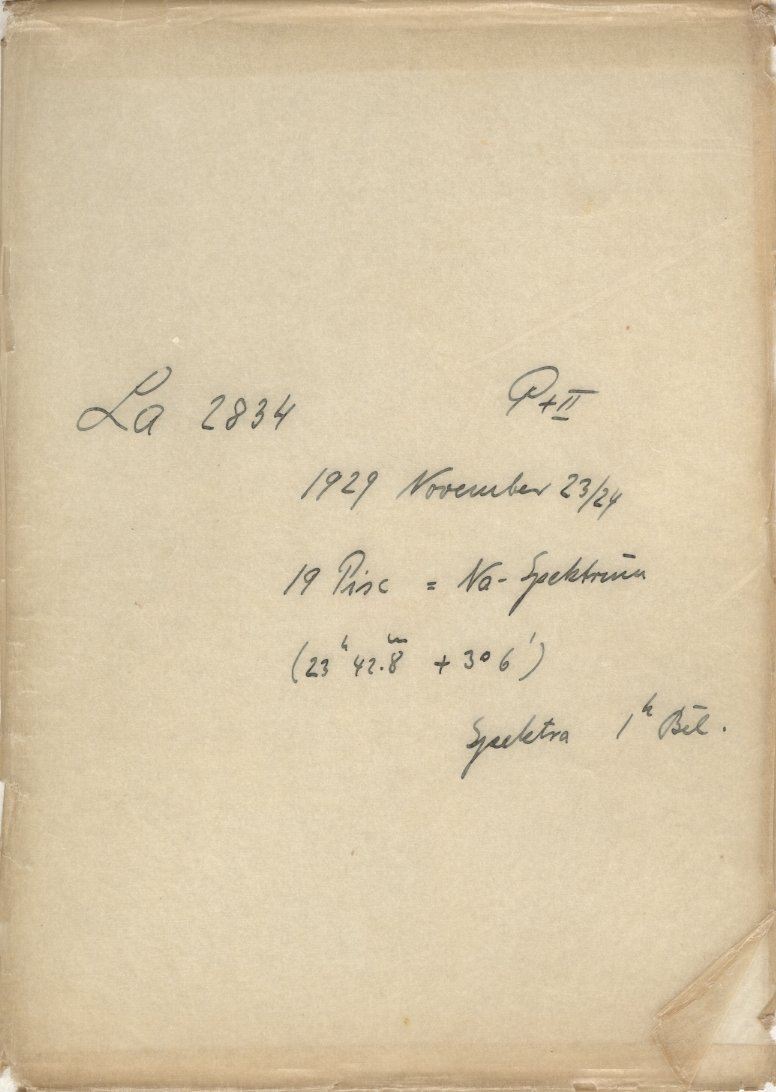 La 2834 P+II
1929 November 23/24
19 Pisc = Na-Spektrum
(23ʰ 42.8ᵐ + 3° 6')
Spektra 1ʰ Bel.